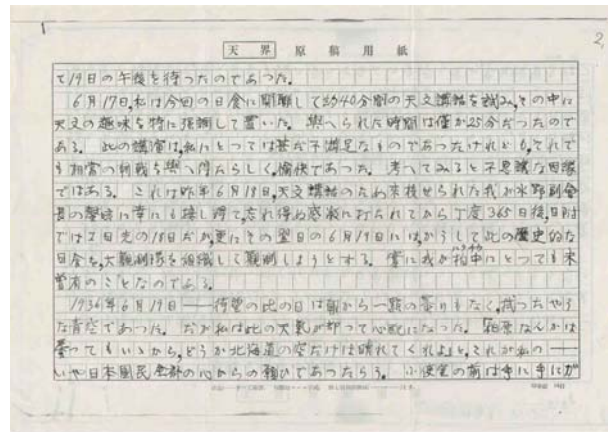 2,
天界 原稿用紙
て19日の午後を待つたのであつた。
6月17日、私は今回の日食に関聯して約40分間の天文講話を試み、その中に
天文の趣味を特に強調して置いた。與へられた時間は僅か25分だつたので
ある。此の講演は、私にとつては甚だ不満足なものであつたけれども、それで
も相當の刺戟を與へ得たらしく、愉快であつた。考へてみると不思議な因縁
ではある。これは昨年6月18日、天文講話のため来校せられた我が水野副會
長の聲咳に幸にも接し得て、忘れ得ぬ感激に打たれてから丁度365日後、日附
では1日先の18日だが、更にその翌日の6月19日には、かうして此の歴史的な
日食を、大観測隊を組織して観測しようとする。實に我が柏中にとつても未
曾有のことなのである。
1936年6月19日——待望の此の日は朝から一點の曇りもなく、拭つたやう
な青空であつた。だが私は此の天氣が却つて心配になつた。「柏原なんかは
曇つてもいゝから、どうか北海道の空だけは晴れてくれよ」と、これが私の——
いや日本國民全部の心からの願ひであつたらう。小使室の前は手に手にガ